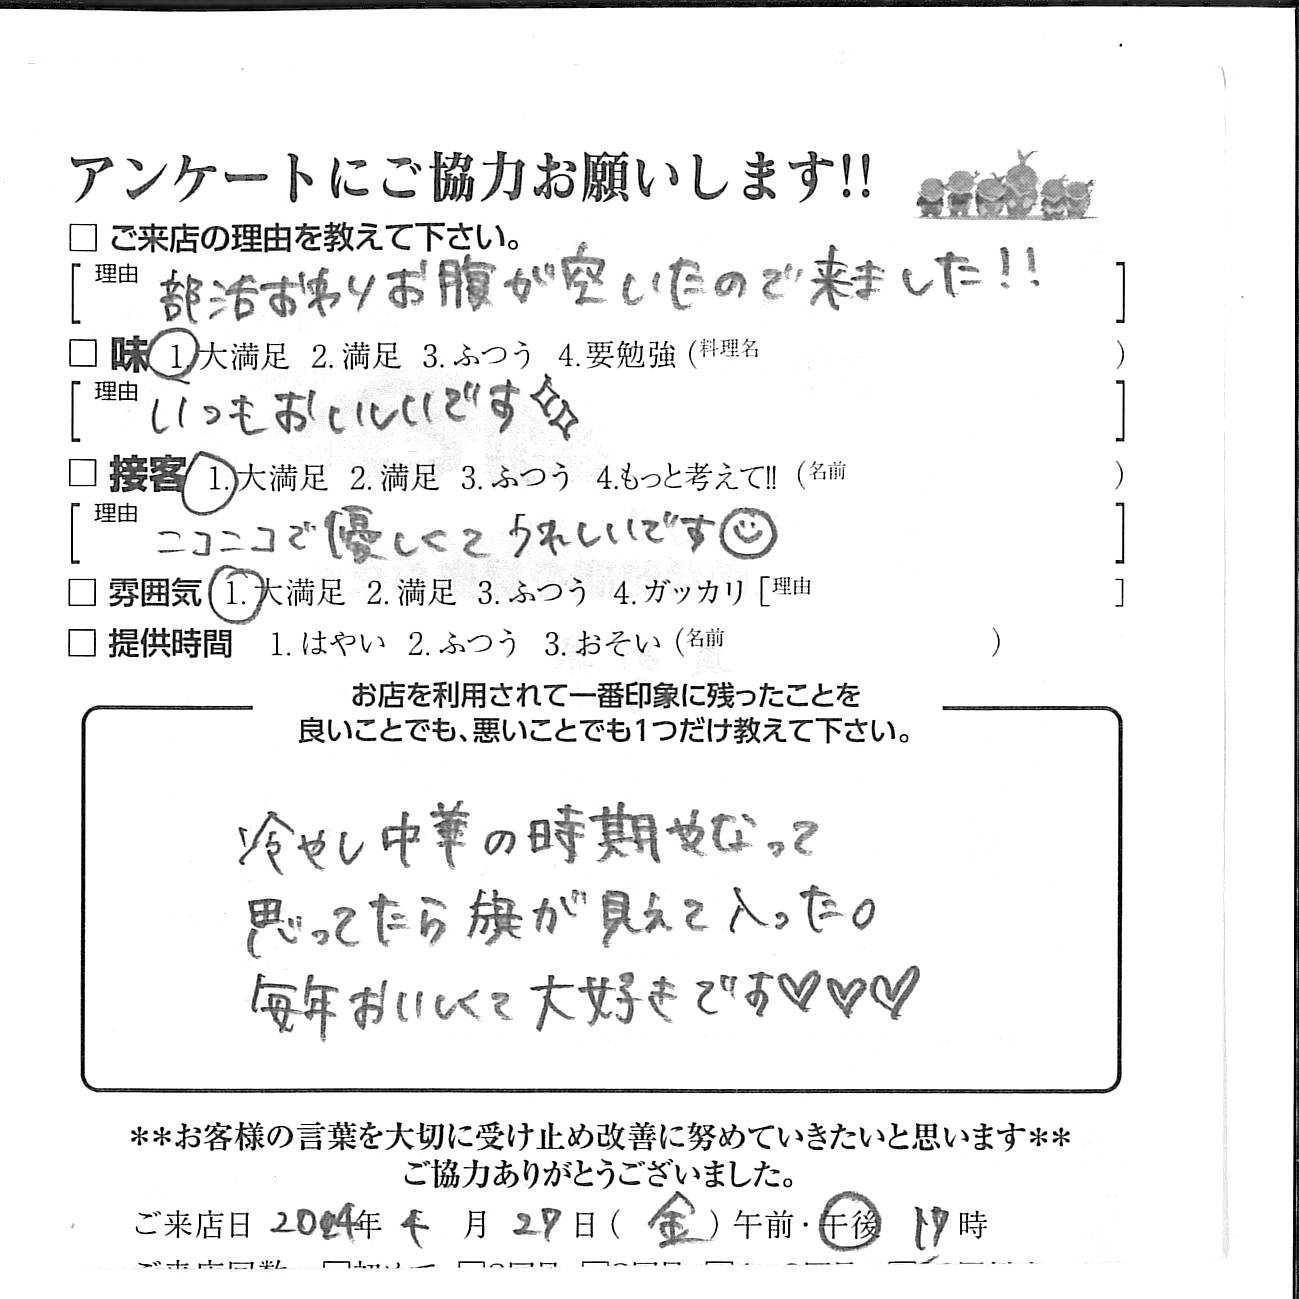 アンケートにご協力お願いします!!
□ ご来店の理由を教えて下さい。
[理由 部活おわりお腹が空いたので来ました!!]
□ 味 1.大満足 2.満足 3.ふつう 4.要勉強 (料理名 )
[理由 いつもおいしいです]
□ 接客 1.大満足 2.満足 3.ふつう 4.もっと考えて!! (名前 )
[理由 ニコニコで優しくてうれしいです]
□ 雰囲気 1.大満足 2.満足 3.ふつう 4.ガッカリ [理由 ]
□ 提供時間 1.はやい 2.ふつう 3.おそい (名前 )
お店を利用されて一番印象に残ったことを
良いことでも、悪いことでも1つだけ教えて下さい。
冷やし中華の時期やなって
思ってたら旗が見えて入った。
毎年おいしくて大好きです♡♡♡
**お客様の言葉を大切に受け止め改善に努めていきたいと思います**
ご協力ありがとうございました。
ご来店日 年 月 27日(金)午前・午後 17時